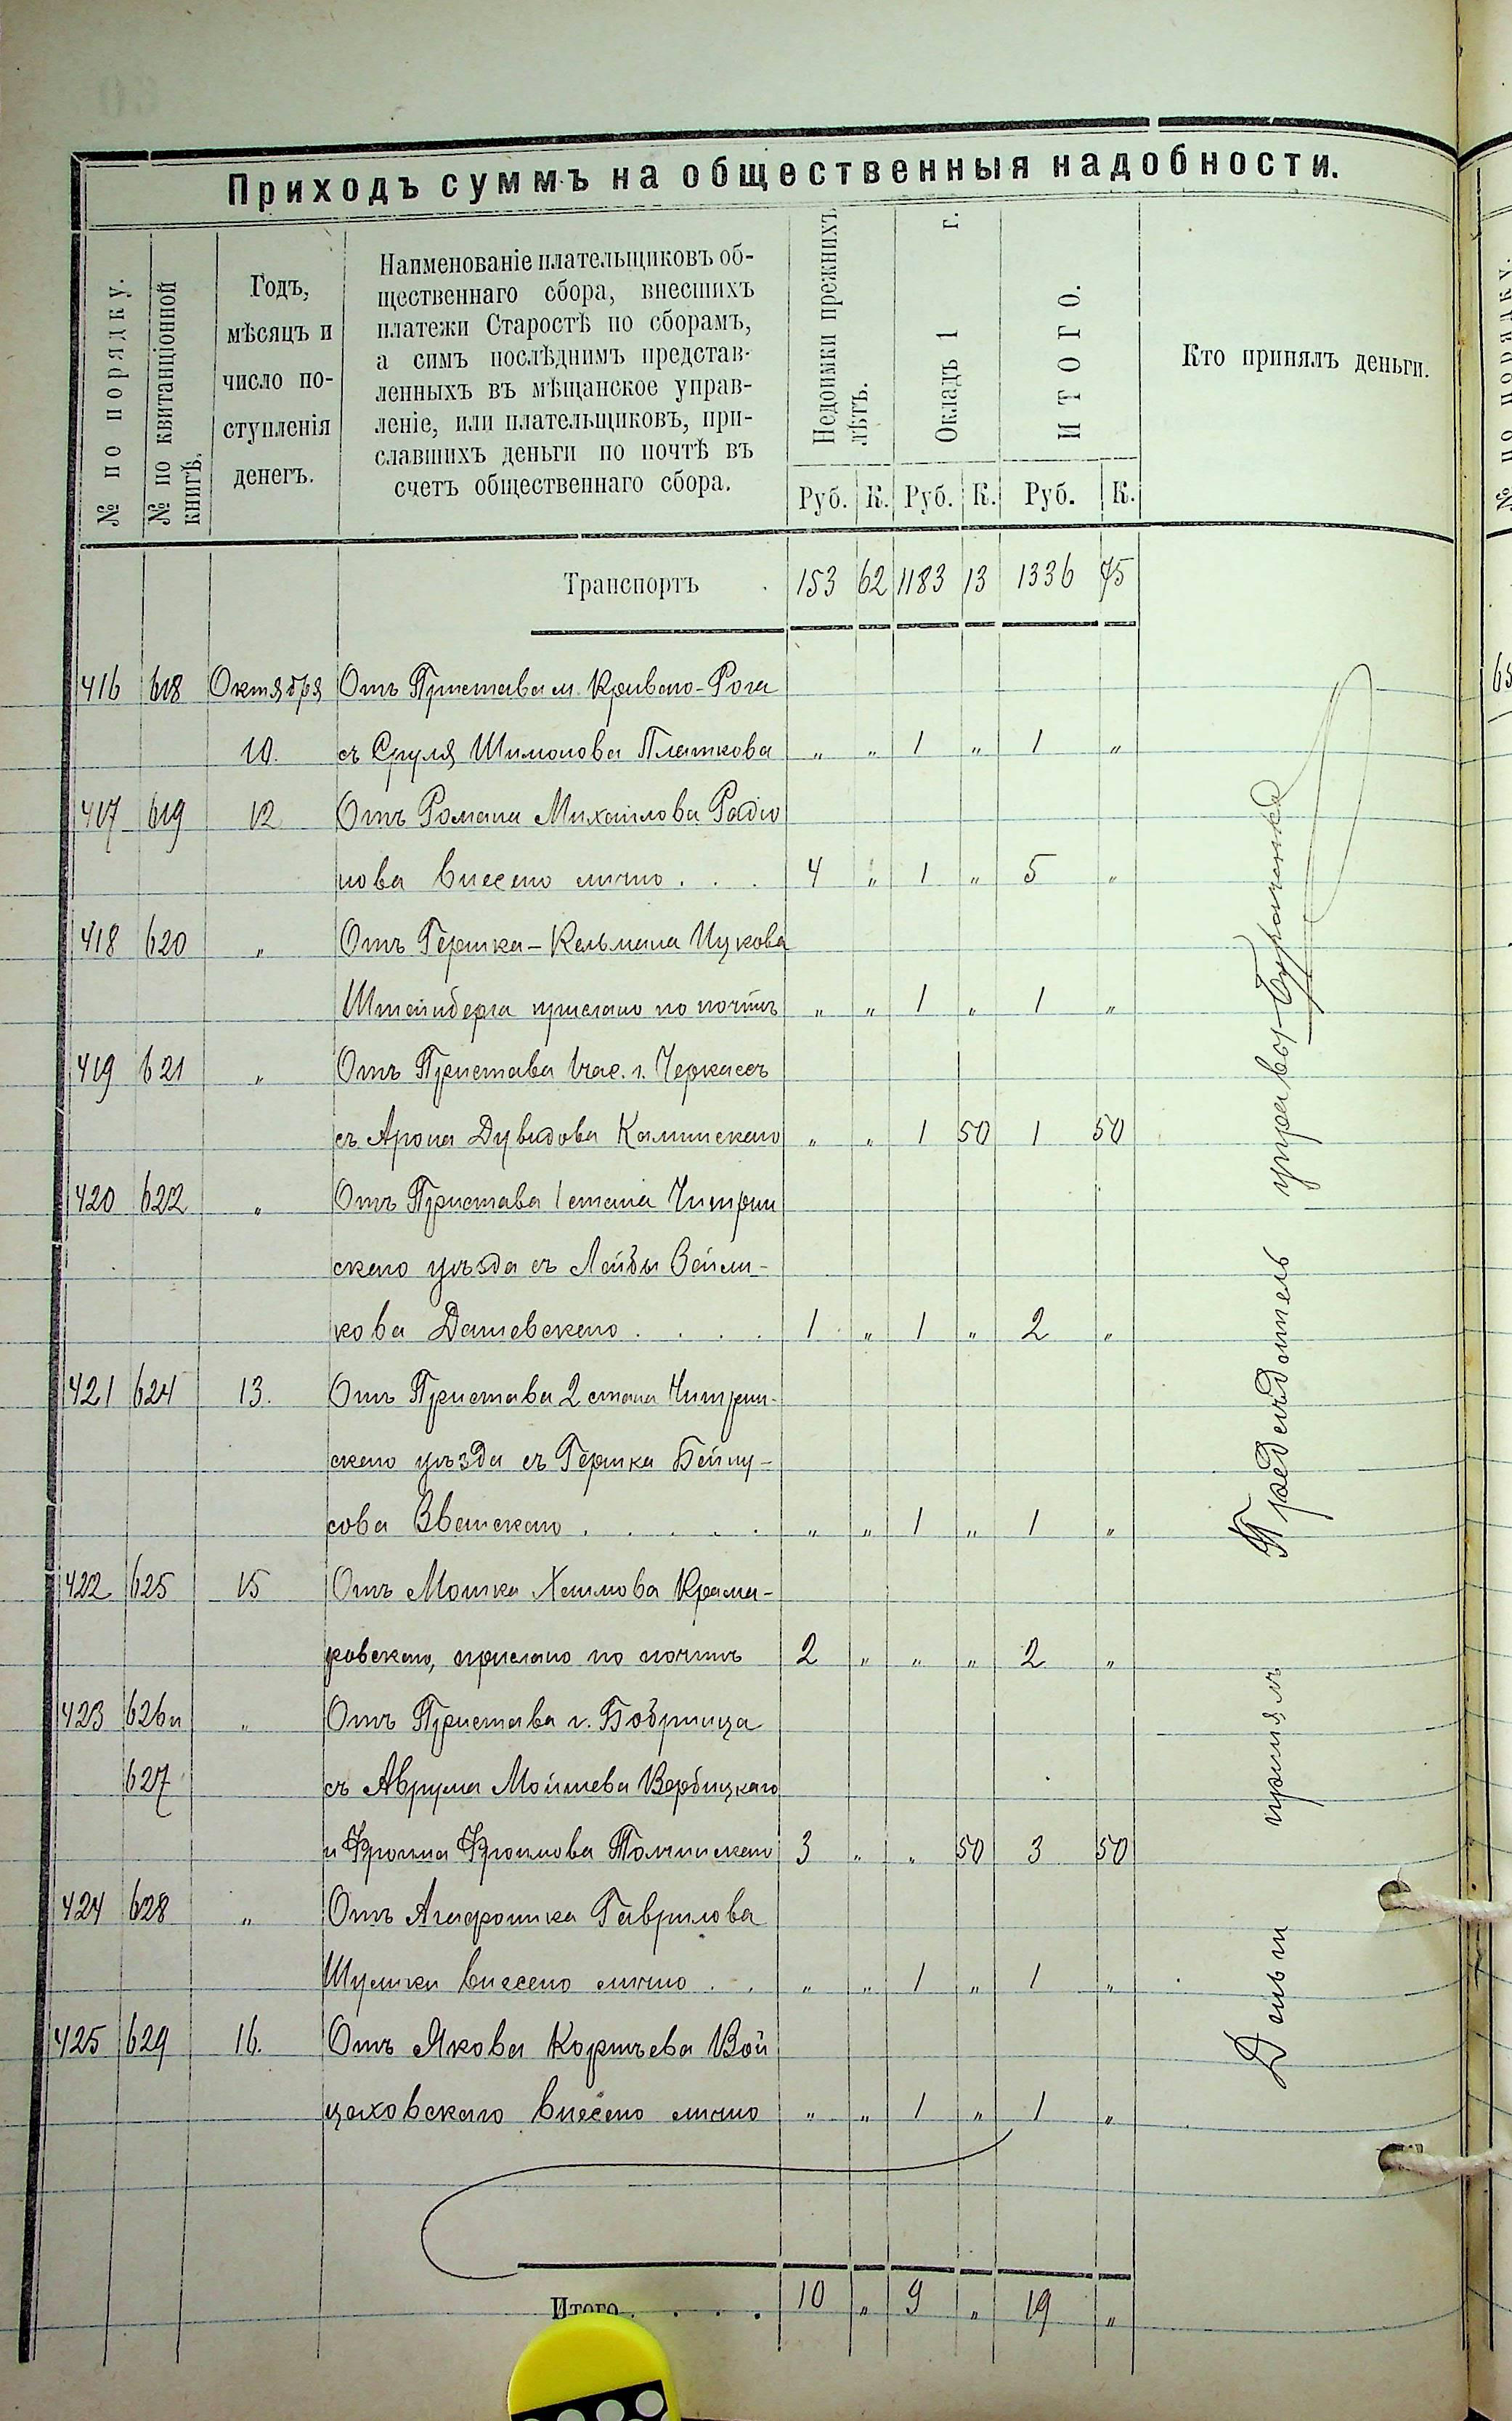 Приходъ суммъ на общественныя надобности.
№ по порядку.
№ по квитанціонной книгѣ.
Годъ,
мѣсяцъ и
число по-
ступленія
денегъ.
Наименованіе плательщиковъ об-
щественнаго сбора, внесшихъ
платежи Старостѣ по сборамъ,
а симъ послѣднимъ представ-
ленныхъ въ мѣщанское управ-
леніе, или плательщиковъ, при-
славшихъ деньги по почтѣ въ
счетъ общественнаго сбора.
Недоимки прежнихъ лѣтъ.
Окладъ 1 г.
ИТОГО.
Кто принялъ деньги.
Руб. К. Руб. К. Руб. К.
Транспортъ . 153 62 1183 13 1336 75
416 618 Октября Отъ Пристава м. Криваго-Рога
10. съ Сруля Шимонова Платкова „ „ 1 „ 1 „
417 619 12 Отъ Романа Михайлова Радіо
нова внесено лично . . . 4 „ 1 „ 5 „
418 620 „ Отъ Гершка-Кельмана Ицкова
Штейнберга прислано по почтѣ „ „ 1 „ 1 „
419 621 „ Отъ Пристава 1 час. г. Черкассъ
съ Арона Дувидова Каминскаго „ „ 1 50 1 50
420 622 „ Отъ Пристава 1 стана Чигрин
скаго уѣзда съ Лейбы Зейли-
кова Дашевскаго . . . . 1 „ 1 „ 2 „
421 624 13. Отъ Пристава 2 стана Чигрин-
скаго уѣзда съ Гершка Бейну-
сова . . . . . „ „ 1 „ 1 „
422 625 15 Отъ Мошка Хаимова Крама-
ровскаго, прислано по почтѣ 2 „ „ „ 2 „
423 626 и „ Отъ Пристава г. Бобринца
627 съ Аврума Мойшева Вербицкаго
и Фроима Фроимова Толчинскаго 3 „ „ 50 3 50
424 628 „ Отъ Агафоника Гаврилова
Шульжи внесено лично . . „ „ 1 „ 1 „
425 629 16. Отъ Якова Корнѣева Вой
цеховскаго внесено лично „ „ 1 „ 1 „
Итого . . . . 10 „ 9 „ 19 „
Деньги принялъ Предсѣдатель управы